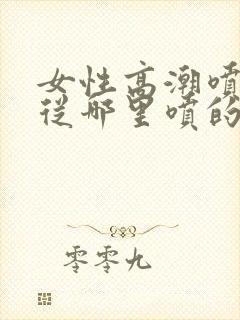 女性高潮噴
從哪里噴的
零零九